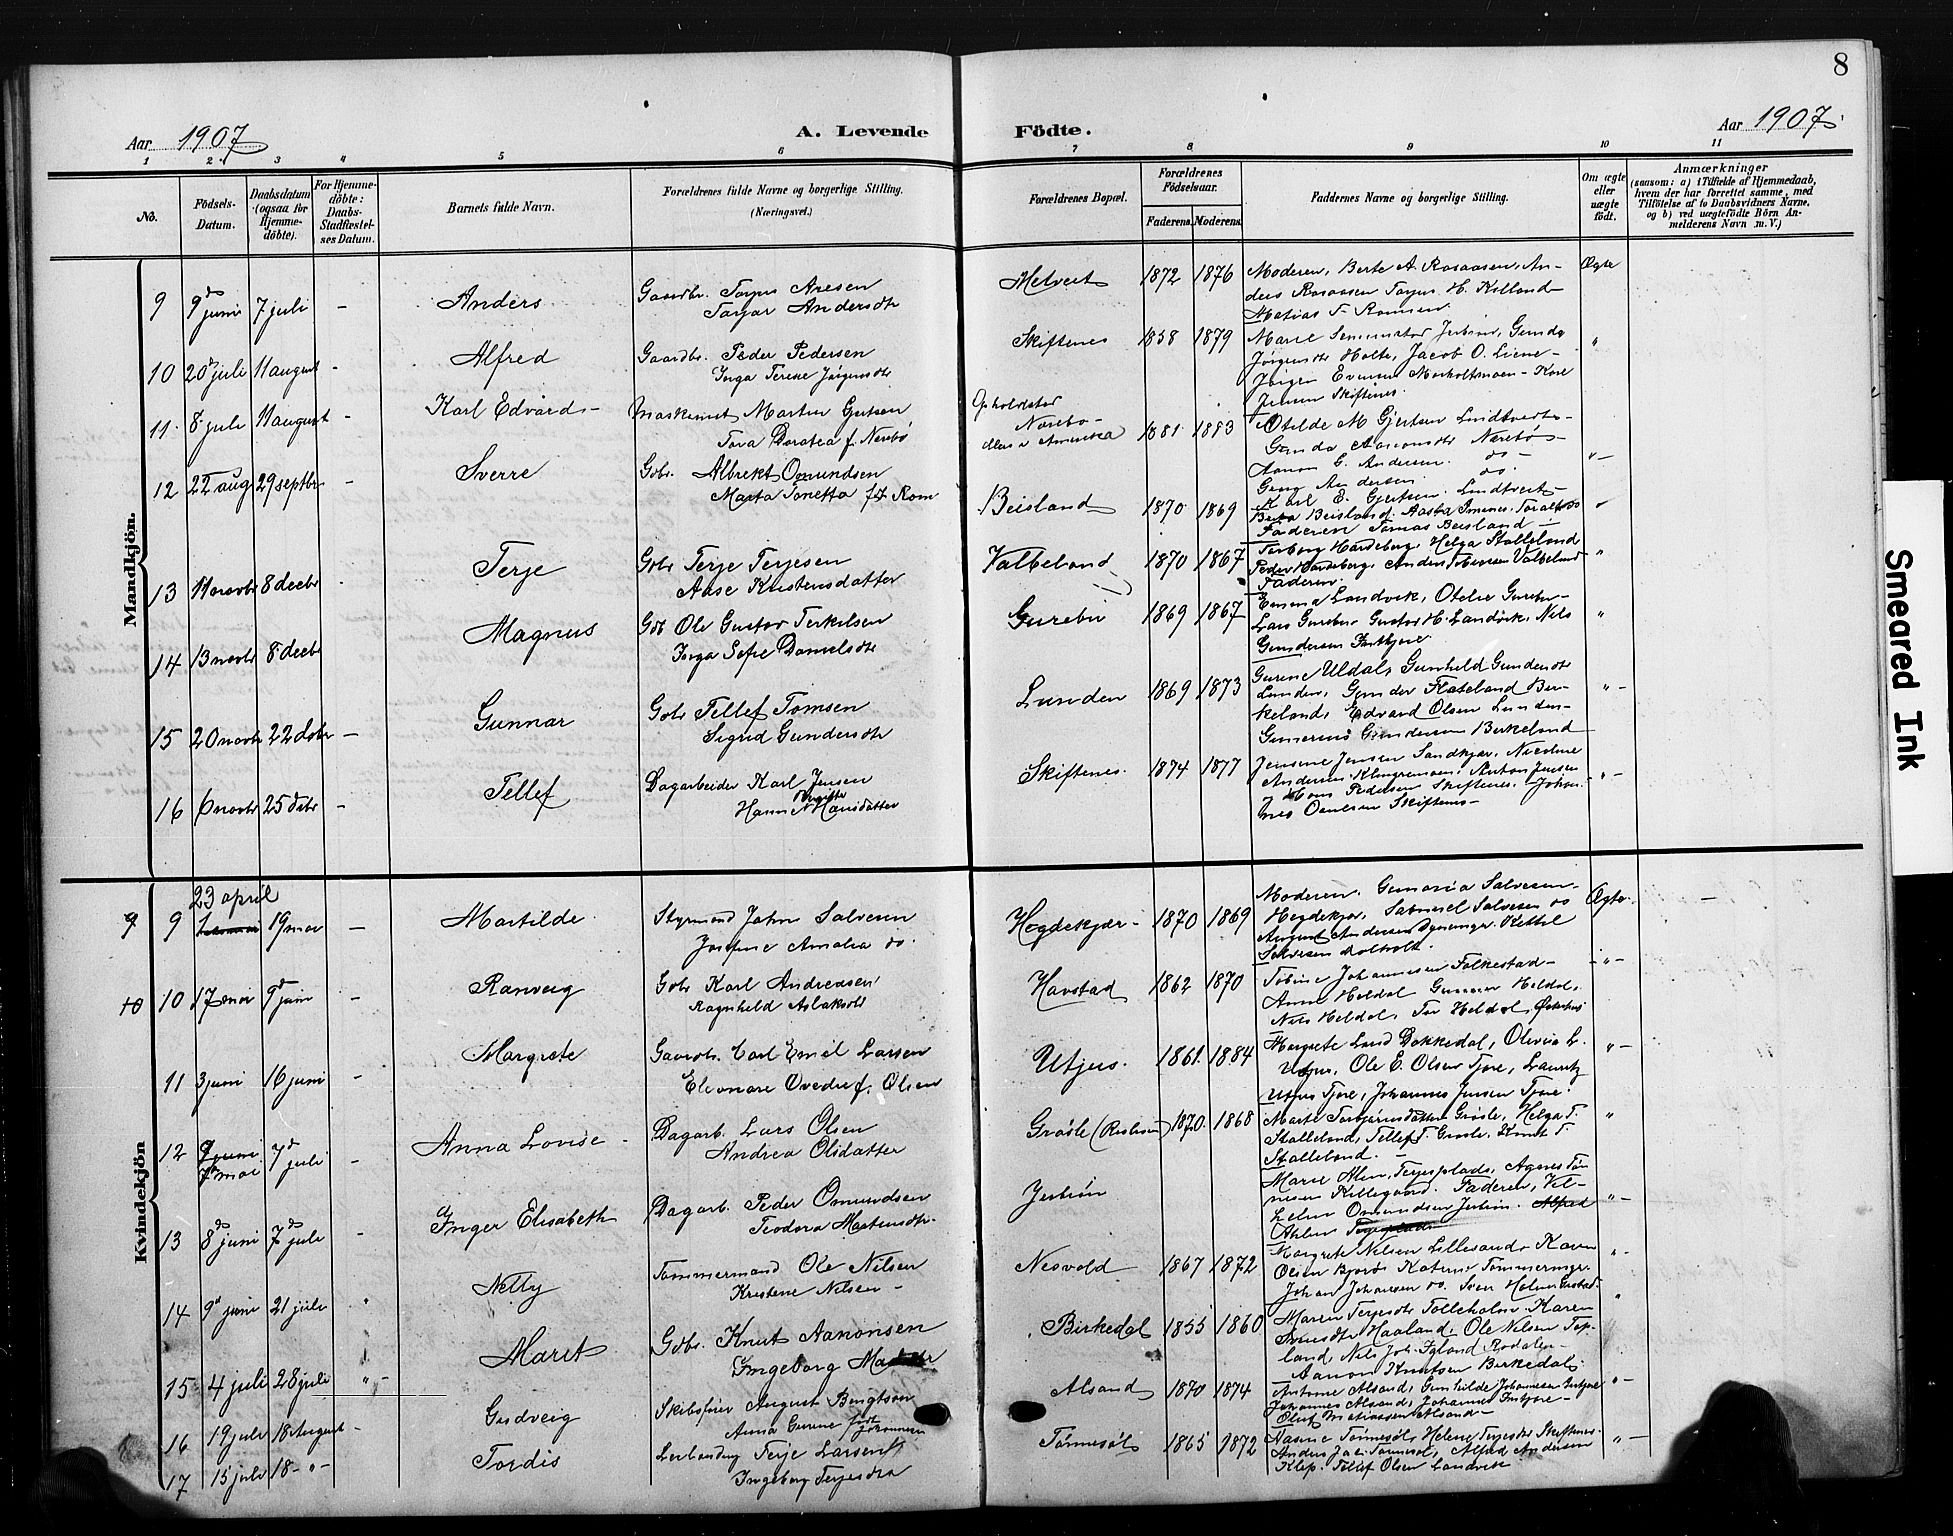 8
Aar 1907
A. Levende
Födte.
Aar 1907
1 2 3 4 5 6 7 8 9 10 11
No.
Fødsels-Datum.
Daabsdatum (ogsaa for Hjemme-døbte).
For Hjemme-døbte: Daabs-Stadfæstel-ses Datum.
Barnets fulde Navn.
Forældrenes fulde Navne og borgerlige Stilling. (Næringsvei.)
Forældrenes Bopæl.
Forældrenes Fødselsaar.
Faderens. Moderens.
Faddernes Navne og borgerlige Stilling.
Om ægte eller uægte født.
Anmærkninger
(saasom: a) i Tilfælde af Hjemmedaab, hvem der har forrettet samme, med Tilføielse af to Daabsvidners Navne, og b) ved uægtefødte Børn An-melderens Navn m. V.)
Mandkjön.
9 9d juni 7 juli - Anders Gaardbr. Torjus Aresen
Torjar Andersdtr
Melveit 1872 1876 Moderen, Berte A. Rosaasen, An-
ders Rosaasen Torjus H. Killand
Matias T. Ramsen
Ægte
10 20d juli 11 august - Alfred Gaardbr. Peder Pedersen
Inga Terese Jørgensdtr
Skiftenes 1858 1879 Marie Seminstad Jerbrin, Gunda
Jørgensdtr Holte, Jacob O. Liene -
Jørgen Evensen Morholtmoen - Kare
Jensen Skiftenes
"
11 8 juli 11 august - Karl Edvard - Maskinist Martin Gjertsen
Tora Dorotea f. Nærbø
Opholdsted
Nærebø -
ellers i Amerika
1881 1883 Otelde M. Gjertsen Lindtveit -
Gunda Aanonsdtr Nærebø -
Aanon G. Andersen do -
Georg Andersen do.
Karl E. Gjertsen. Lindtveit -
" -
12 22 aug 29 septbr - Sverre Gbr. Albrekt Omundsen
Marta Tonetta født Rom
Beisland 1870 1869 Berta Beisland, Aasta Imenes, Toralf do
Faderen Tomas Beisland -
"
13 11 novbr 8 decbr - Terje Gbr Terje Terjesen
Aase Kristensdatter
Valbeland 1870 1867 Torborg Hardeberg, Helga Stalleland
Peder Hardeberg, Anders Tobiassen Valbeland
Faderen.
"
14 13 novbr 8 decbr Magnus Gdb Ole Gustav Terkelsen
Inga Sofie Danielsdtr
Gurebu 1869 1867 Emma Landvik, Otelie Gurebu -
Lars Gurebu, Gustav H. Landvik, Nils
Gundersen Inntjore
"
15 20 novbr 22 dcbr - Gunnar Gbr Tellef Tomsen
Sigrid Gundersdtr
Lunden 1869 1873 Gurine Uldal, Gunhild Gundersdtr
Lunden, Gunder Flateland Bir-
keland, Edvard Olsen Lunden -
Gunerius Gundersen Birkeland
" -
16 6 novbr 25 dcbr - Tellef Dagarbeider Karl Jensen
Hanne Birgitte Hansdatter
Skiftenes. 1874 1877 Jensine Jensen Sandkjær, Nicoline
Andersen Klingremoen, Anton Jensen
Hans Pedersen Skiftenes, Johan-
nes Omelsen Skiftenes -
" -
Kvindekjön
9 9 23 april 1 mai 19 mai - Martilde Styrmand John Salvesen
Josefine Amalia do.
Hegdekjær - 1870 1869 Moderen. Gunaria Salvesen -
Hegdekjær, Sabinsel Salvesen do
August Andersen Dynninger. Kettel
Salvesen Dolholt.
Ægte.
10 10 17 mai 9d juni - Ranveig Gbr Karl Andreassen
Ragnhild Aslaksdtr
Havstad 1862 1870 Tobine Johannesen Folkestad -
Anne Heldal Gunnar Heldal,
Nils Heldal, Tor Heldal, Østerhus
- " -
11 3 juni 16 juni - Margrete Gaardb. Carl Emil Larsen
Eleonore Ovedie f. Olsen
Utjus. 1861 1884 Margrete Lund Dokkedal, Olivia L.
Utjus, Ole E. Olsen Tjore, Lauritz
Utjus Tjore, Johannes Jensen Tjore
" -
12 9 juni 7de mai 7d juli - Anna Lovise - Dagarb. Lars Olsen
Andrea Olsdatter
Grøsle (Risbrin) 1870 1868 Marte Torbjørnsdatter Grøsle, Helga T.
Stalleland, Tellef T. Grosle, Knut T.
Stalleland. -
"
13 8d juni 7d juli - Inger Elisabeth Dagarb. Peder Omundsen
Teodora Mortensdtr.
Jerbrin Marie Ahlen, Terjesplads, Agnes Tøn-
nesen Killegaard. Faderen, Vil-
helm Omundsen Jerbrin. Alfred
Ahlen Terjesplads
" -
14 9d juni 21 juli " Netty Tømmermand Ole Nilsen
Kristine Nilsen -
Nesvold 1867 1872 Margrete Nilsen Lillesand, Karen
Olsen Bjord, Katerine Tømmermgr.
Johan Johansen do. Sven Holm Grestad
" -
15 4 juli 28 juli " - Marit Gdbr. Knut Aanonsen
Ingeborg
Birkedal 1855 1860 Maren Terjesdtr Tolleholm Karen
Haaland, Ole Nilsen Top-
land, Nils Joh. Igland Rodalen -
Aanon Knutsen Birkedal
"
16 19 juli 18 August - Gudveig Skibsfører August Bengtson
Anna Gurine født Johannesen
Alsand 1870 1874 Antonie Alsand, Gunhilde Johannesen Inntjore
Johannes Alsand, Johannes Inntjore
Oluf Matiassen Alsand -
" -
17 15 juli 18 - " - Tordis Leilending Terje Larsen
Ingeborg Terjesdtr
Tønnesøl 1865 1872 Aasine Tønnesøl, Helene Terjesdtr Skiftenes.
Anders Jac. Tønnesøl, Alfred Andersen
Klep. Tellef Olsen Landvik
" -
Smeared Ink